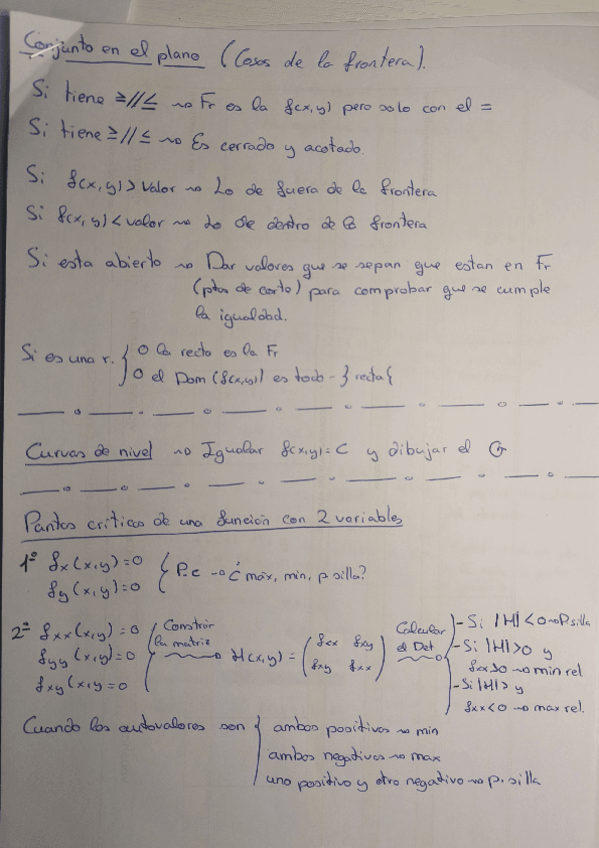 Conjunto en el plano (Cosas de la frontera).
Si tiene ≥//≤ ⇝ Fr es la f(x,y) pero solo con el =
Si tiene ≥//≤ ⇝ Es cerrado y acotado.
Si f(x,y) > valor ⇝ Lo de fuera de la frontera
Si f(x,y) < valor ⇝ Lo de dentro de la frontera
Si esta abierto ⇝ Dar valores que se sepan que estan en Fr
(ptos de corte) para comprobar que se cumple
la igualdad.
Si es una r. { O la recta es la Fr
O el Dom (f(x,y)) es todo - } recta {
Curvas de nivel ⇝ Igualar f(x,y) = C y dibujar el
Puntos criticos de una función con 2 variables
1º fx(x,y)=0
fy(x,y)=0 { P.c → ¿ máx, min, p silla?
2º fxx(x,y)=0
fyy(x,y)=0
fxy(x,y=0
Construir
la matriz
H(x,y) = ( fxx fxy
fxy fxx )
Calcular
el Det
- Si |H| < 0 → P. silla
- Si |H| > 0 y
fxx > 0 → min rel
- Si |H| > y
fxx < 0 → max rel.
Cuando los autovalores son { ambos positivos ⇝ min
ambos negativos ⇝ max
uno positivo y otro negativo ⇝ p. silla